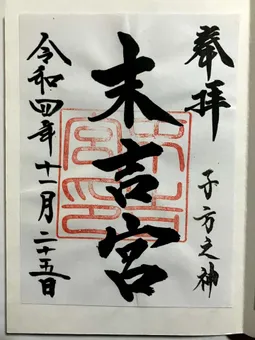 奉拝
子方之神
末吉宮
令和四年十一月二十五日
末吉宮印